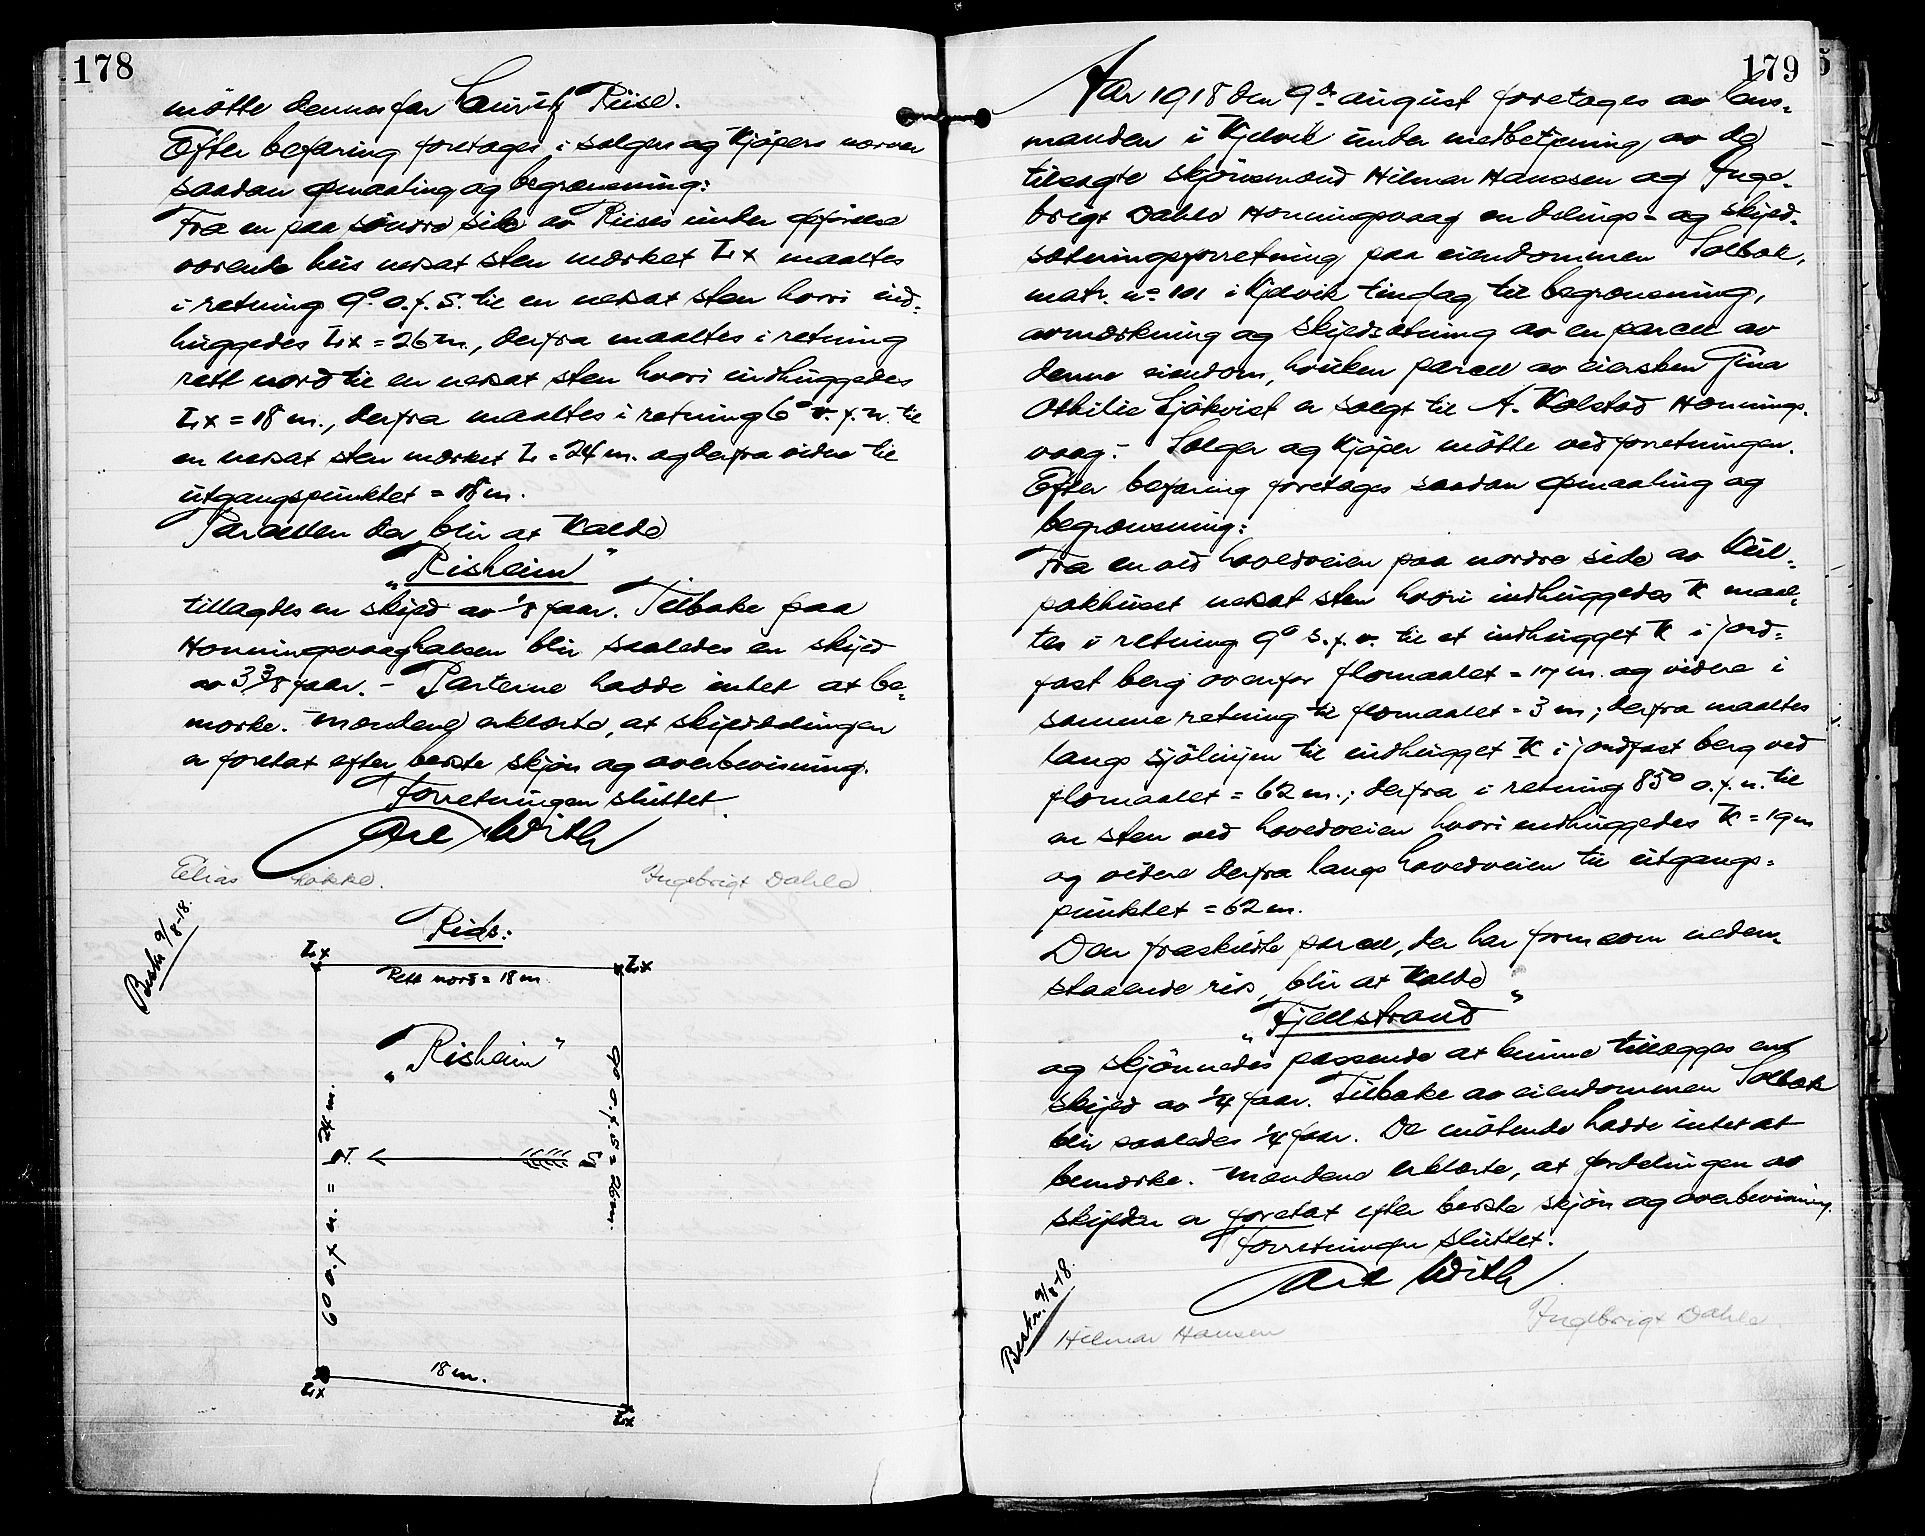 178
møtte dennes far Lauritz Riise.
Efter befaring foretages i sælgers og kjøpers nærvær
saadan opmaaling og begrænsning:
Fra en paa søndre side av Riises under opførelse
værende hus nedsat sten mærket L x maaltes
i retning 9° o.f.S. til en nedsat sten hvori ind-
huggedes L x = 26 m., derfra maaltes i retning
rett nord til en nedsat sten hvori indhuggedes
L x = 18 m., derfra maaltes i retning 6° v.f.n. til
en nedsat sten mærket L = 24 m. og derfra videre til
utgangspunktet = 18 m.
Parcellen der blir at kalde
„Risheim"
tillagdes en skyld av 1/8 faar. Tilbake paa
Honningsvaaghalsen blir saaledes en skyld
av 3 3/8 faar. - Parterne hadde intet at be-
mærke. Mændene erklærte, at skylddelingen
er foretat efter beste skjøn og overbevisning.
Forretningen sluttet.
Are With
Elias Løkke. Ingebrigt Dahle.
Besk. 9/8-18.
Rids:
L x L x
Rett nord = 18 m
„Risheim"
6° o.f.n. = 24 m.
9° o.f.S = 26 m.
N S
18 m.
L x
L x
179
Aar 1918 den 9de august foretages av lens-
manden i Kjelvik under medbetjening av de
tilsagte skjønsmænd Hilmar Hanssen og Inge-
brigt Dahle Honningsvaag en delings- og skyld-
sætningsforretning paa eiendommen Solbak,
matr. no 101 i Kjelvik tinglag til begrænsning,
avmerkning og skyldsætning av en parcell av
denne eiendom, hvilken parcell av eiersken Gina
Othilie Sjøkvist er solgt til A. Kolstad Honnings-
vaag. - Sælger og kjøper møtte ved forretningen.
Efter befaring foretages saadan opmaaling og
begrænsning:
Fra en ved hovedveien paa nordre side av Kul-
pakhuset nedsat sten hvori indhuggedes K maal-
tes i retning 9° S.f.v. til et indhugget K i jord-
fast berg ovenfor flomaalet = 17 m. og videre i
samme retning til flomaalet = 3 m; derfra maaltes
langs sjølinjen til indhugget K i jordfast berg ved
flomaalet = 62 m.; derfra i retning 85° o.f.n. til
en sten ved hovedveien hvori indhuggedes K = 19 m
og videre derfra langs hovedveien til utgangs-
punktet = 62 m.
Den fraskilte parcell, der har form som neden-
staaende rids, blir at kalde
„Fjellstrand"
og skjønnedes passende at kunne tillægges en
skyld av 1/4 faar. Tilbake av eiendommen Solbak
blir saaledes 1/4 faar. De møtende hadde intet at
bemærke. Mændene erklærte, at fordelingen av
skylden er foretat efter beste skjøn og overbevisning.
Forretningen sluttet.
Are With
Besk. 9/8-18.
Hilmar Hansen Ingebrigt Dahle.